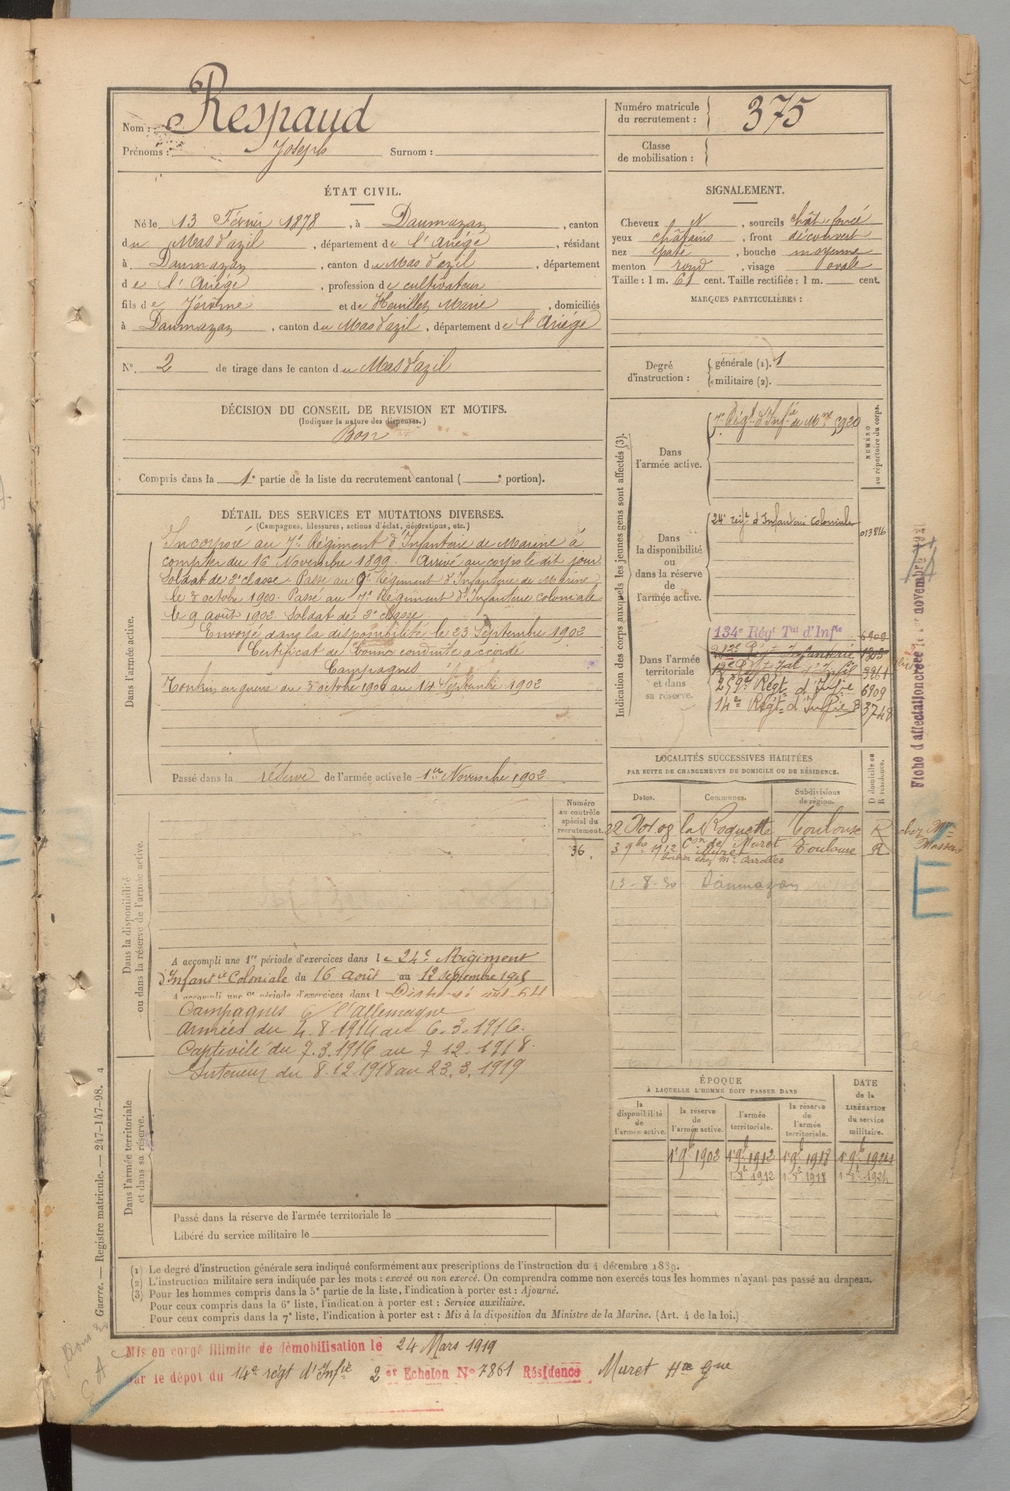 Nom : Respaud
Prénoms : Joseph Surnom :
Numéro matricule du recrutement : 375
Classe de mobilisation :
ÉTAT CIVIL.
Né le 13 Février 1878, à Daumazan, canton
du Mas d'azil, département de l'Ariège, résidant
à Daumazan, canton du Mas d'azil, département
de l'Ariège, profession de cultivateur
fils de Jérôme et de Marie, domiciliés
à Daumazan, canton du Mas d'azil, département de l'Ariège
N° 2 de tirage dans le canton du Mas d'azil
SIGNALEMENT.
Cheveux N, sourcils chât. foncé
yeux châtains, front découvert
nez épaté, bouche moyenne
menton rond, visage ovale
Taille : 1 m. 61 cent. Taille rectifiée : 1 m. cent.
MARQUES PARTICULIÈRES :
Degré d'instruction : générale (1). 1
militaire (2).
DÉCISION DU CONSEIL DE REVISION ET MOTIFS.
(Indiquer la nature des dispenses.)
Bon
Compris dans la 1e partie de la liste du recrutement cantonal ( e portion).
DÉTAIL DES SERVICES ET MUTATIONS DIVERSES.
(Campagnes, blessures, actions d'éclat, décorations, etc.)
Dans l'armée active.
Incorporé au 7e Régiment d'Infanterie de Marine à
compter du 16 Novembre 1899. Arrivé au corps le dit jour
Soldat de 2e classe. Passé au 9e Régiment d'Infanterie de Marine
le 3 octobre 1900. Passé au 7e Régiment d'Infanterie coloniale
le 9 août 1902. Soldat de 2e classe
Envoyé dans la disponibilité le 23 Septembre 1902
Certificat de bonne conduite accordé
Campagnes
Tonkin en guerre du 3 octobre 1900 au 14 Septembre 1902
Passé dans la réserve de l'armée active le 1er Novembre 1902
Numéro au contrôle spécial du recrutement.
36.
Dans la disponibilité ou dans la réserve de l'armée active.
A accompli une 1re période d'exercices dans le 24e Régiment
d'Infanterie Coloniale du 16 août au 12 septembre 1908
A accompli une 2e période d'exercices dans l
Campagnes c/ l'Allemagne
Armées du 4.8.1914 au 6.3.1916.
Captivité du 7.3.1916 au 7 12.1918.
Intérieur du 8.12.1918 au 23.3.1919
Dans l'armée territoriale et dans sa réserve.
Passé dans la réserve de l'armée territoriale le
Libéré du service militaire le
Indication des corps auxquels les jeunes gens sont affectés (3).
NUMÉRO au répertoire du corps.
Dans l'armée active.
7e Régt d'Infie de Mne 3920
Dans la disponibilité ou dans la réserve de l'armée active.
24e régt d'Infanterie Coloniale 013816
Dans l'armée territoriale et dans sa réserve.
134e Régt Tal d'Infie 6909
259e Régt d'Infie 6909
14e Régt d'Infie 3748
Fiche d'affectation créée le novembre 1921
LOCALITÉS SUCCESSIVES HABITÉES
PAR SUITE DE CHANGEMENTS DE DOMICILE OU DE RÉSIDENCE.
Dates. Communes. Subdivisions de région. D domicile ou R résidence.
22 Oct 08 la Roquette Toulouse R
3 9bre 1912 Muret Toulouse R
13-8-30 Daumazan
ÉPOQUE
À LAQUELLE L'HOMME DOIT PASSER DANS
la disponibilité de l'armée active.
la réserve de l'armée active.
l'armée territoriale.
la réserve de l'armée territoriale.
DATE de la LIBÉRATION du service militaire.
1er 9b 1902 1er 9b 1912 1er 9b 1918 1er 9b 1924
1912 1918 1924
(1) Le degré d'instruction générale sera indiqué conformément aux prescriptions de l'instruction du 4 décembre 1889.
(2) L'instruction militaire sera indiquée par les mots : exercé ou non exercé. On comprendra comme non exercés tous les hommes n'ayant pas passé au drapeau.
(3) Pour les hommes compris dans la 5e partie de la liste, l'indication à porter est : Ajourné.
Pour ceux compris dans la 6e liste, l'indication à porter est : Service auxiliaire.
Pour ceux compris dans la 7e liste, l'indication à porter est : Mis à la disposition du Ministre de la Marine. (Art. 4 de la loi.)
Guerre. — Registre matricule. — 247-147-98.
Mis en congé illimité de démobilisation le 24 Mars 1919
par le dépôt du 14e régt d'Infie 2 er Echelon N° 7861 Résidence Muret Hte Gne